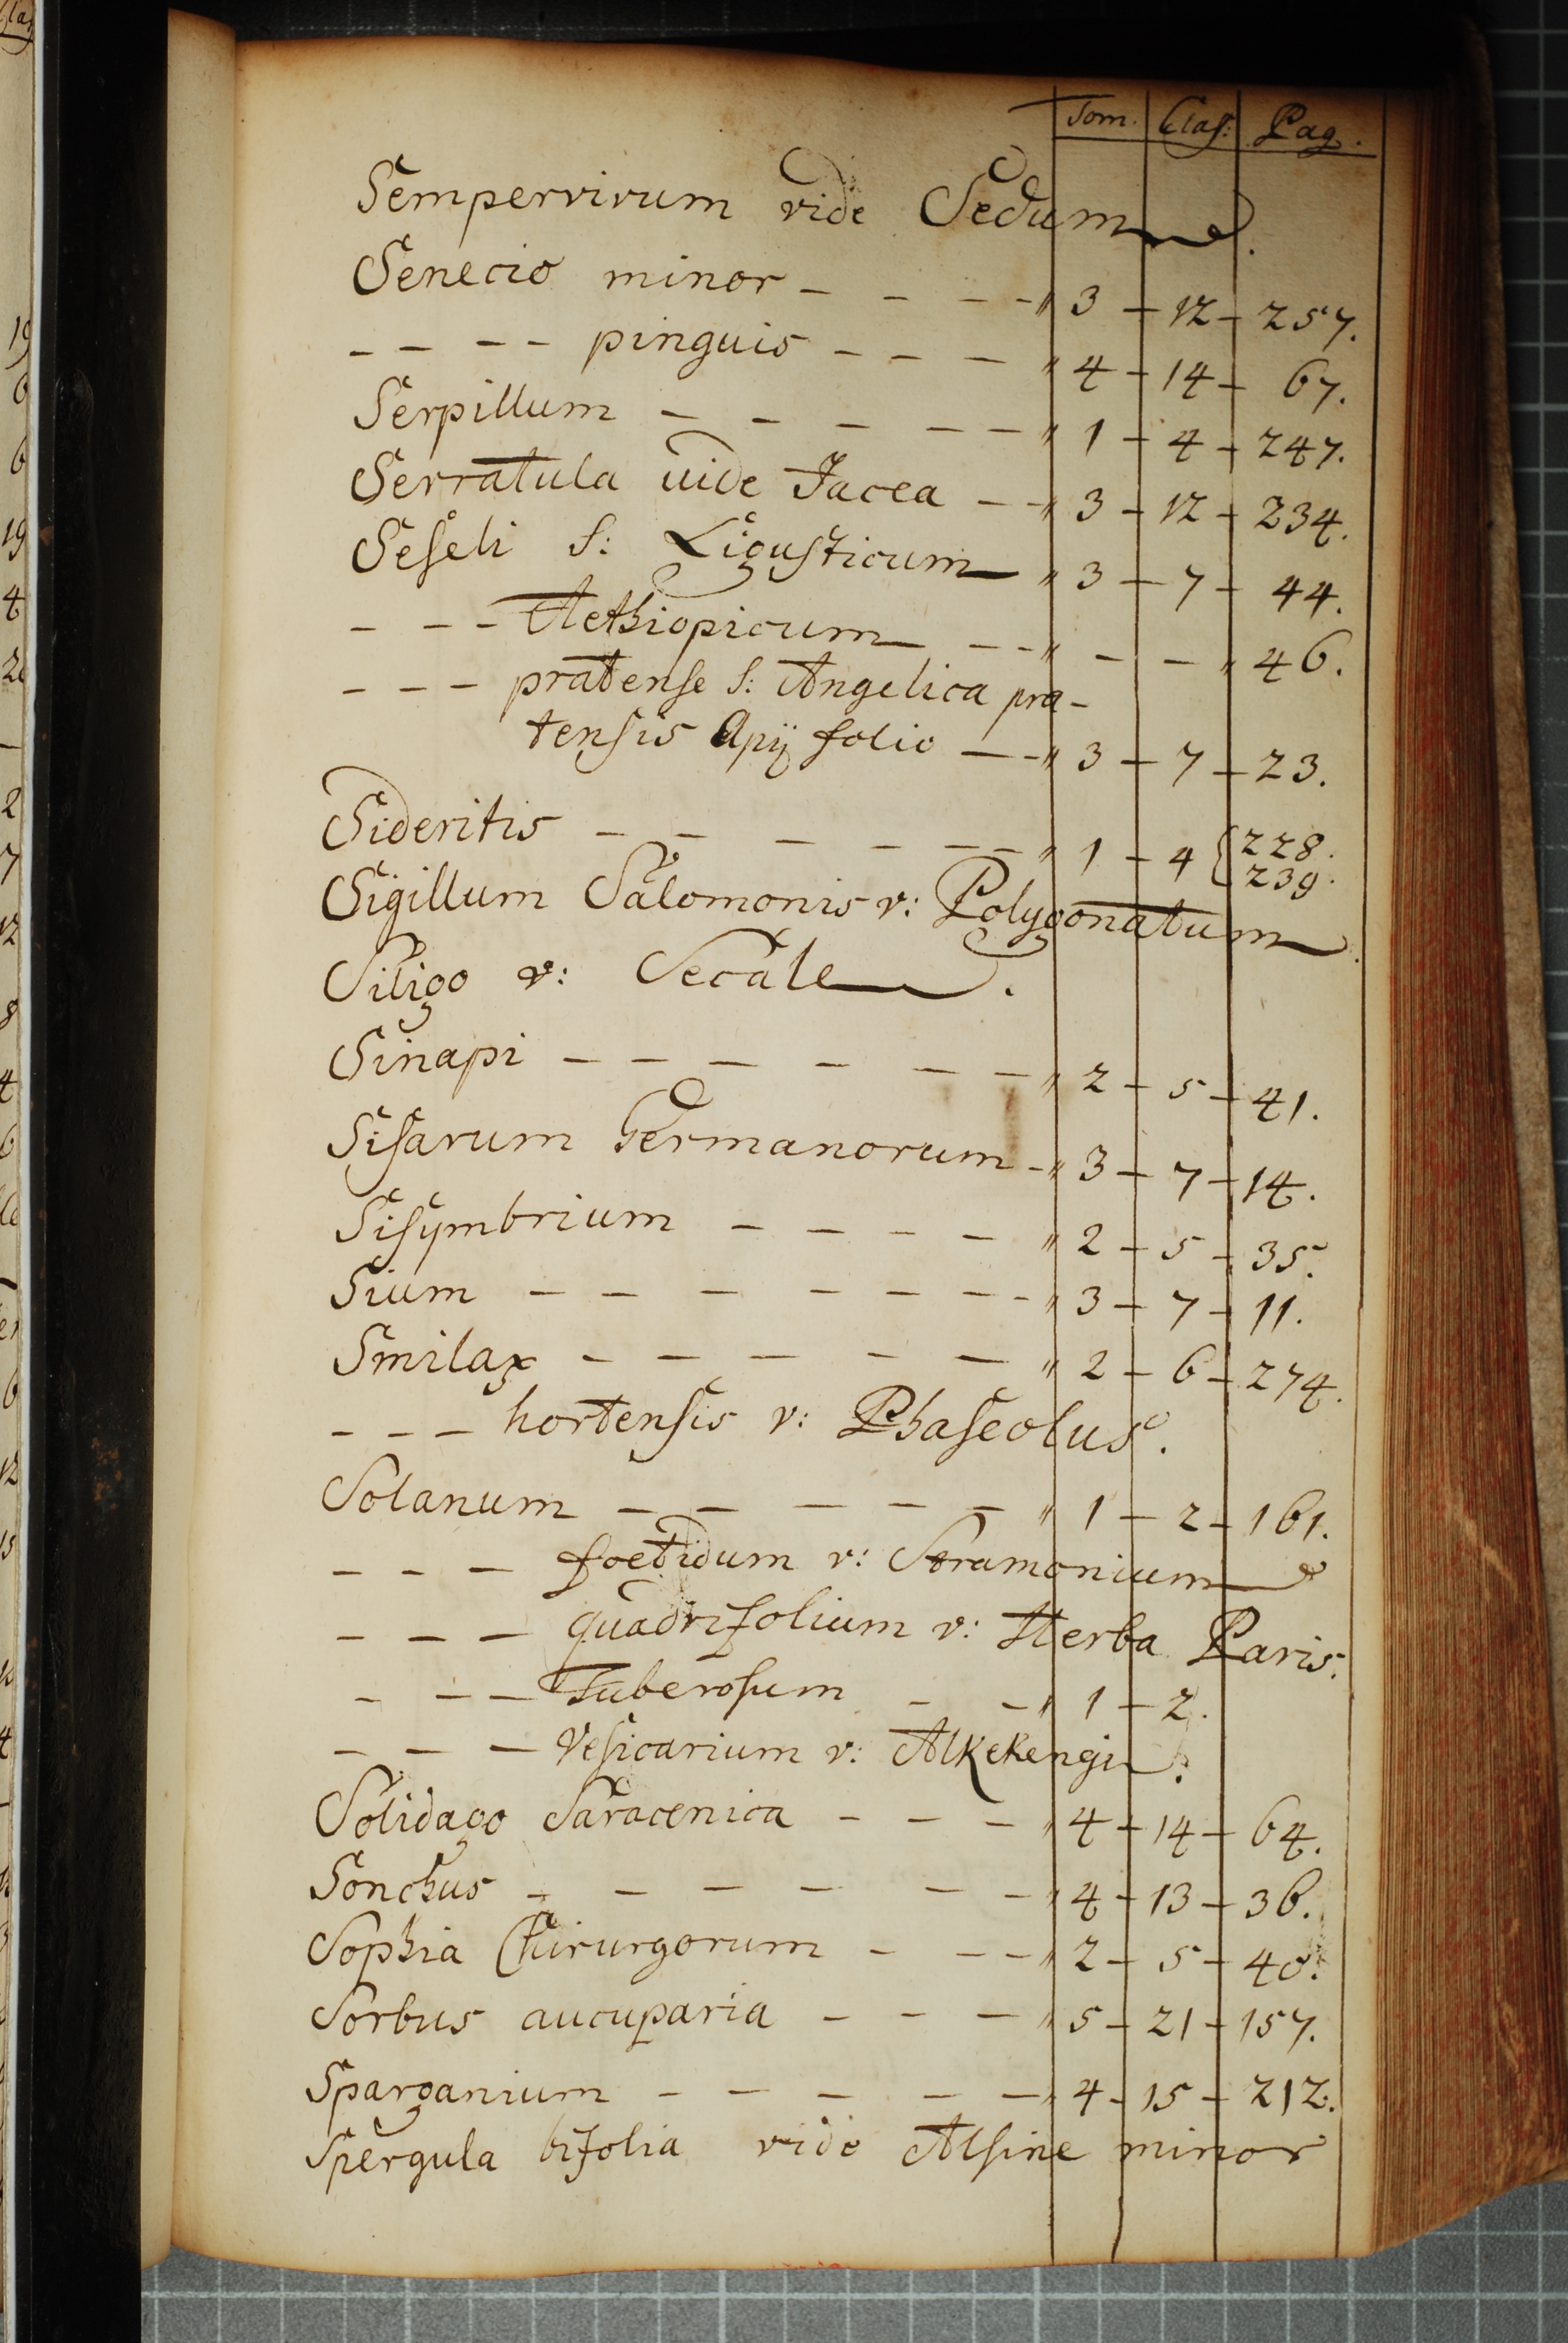 Tom. Clas: Pag.
Sempervivum vide Sedum.
Senecio minor - - - - " 3 - 12 - 257.
- - - - pinguis - - - " 4 - 14 - 67.
Serpillum - - - - - - " 1 - 4 - 247.
Serratula uide Jacea - - " 3 - 12 - 234.
Seseli S: Ligusticum - " 3 - 7 - 44.
- - - Aethiopicum - - - " - - " 46.
- - - pratense S: Angelica pra-
tensis Apij folio - - " 3 - 7 - 23.
Sideritis - - - - - - " 1 - 4 { 228.
239.
Sigillum Salomonis v: Polygonatum.
Siligo v: Secale.
Sinapi - - - - - - " 2 - 5 - 41.
Sisarum Germanorum - " 3 - 7 - 14.
Sisymbrium - - - - " 2 - 5 - 35.
Sium - - - - - - - - " 3 - 7 - 11.
Smilax - - - - - " 2 - 6 - 274.
- - - hortensis v: Phaseolus.
Solanum - - - - - " 1 - 2 - 161.
- - - foetidum v: Stramonium
- - - quadrifolium v: Herba Paris.
- - - Tuberosum - - " 1 - 2.
- - - Vesicarium v: Alkekengi.
Solidago Saracenica - - - " 4 - 14 - 64.
Sonchus - - - - - - " 4 - 13 - 36.
Sophia Chirurgorum - - - " 2 - 5 - 40.
Sorbus aucuparia - - - " 5 - 21 - 157.
Sparganium - - - - - " 4 - 15 - 212.
Spergula bifolia vide Alsine minor